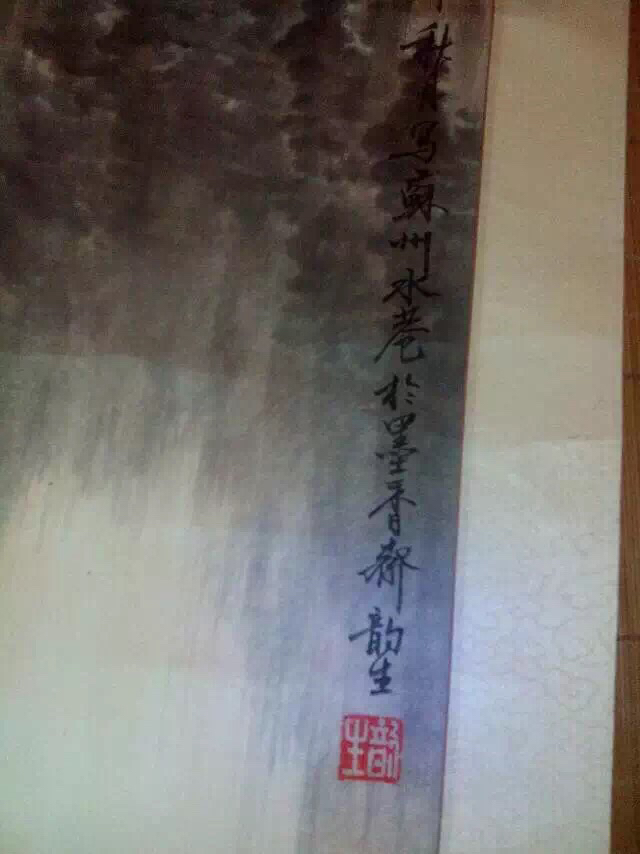 秋月写蘇州水巷於墨香斋 韵生
韵生